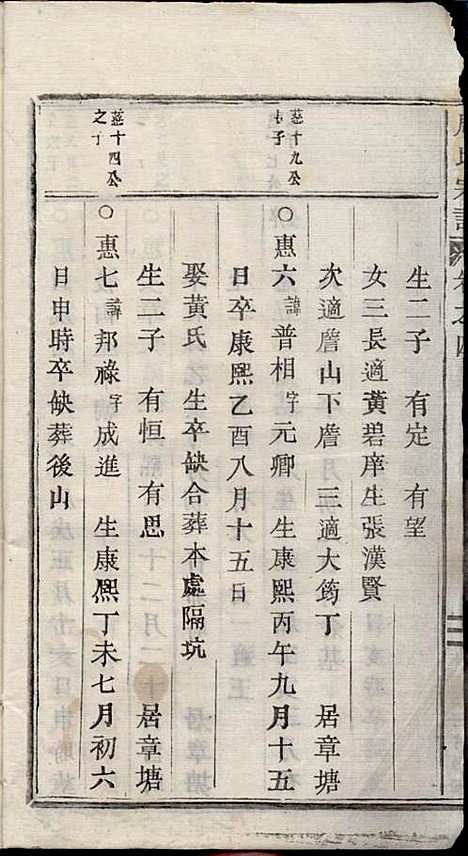 氏宗譜 卷之四
生二子 有定 有望
女三長適黄碧庠生張漢賢
次適詹山下詹 三適大筠丁 居章塘
慈十九公
子
○惠六諱普相字元卿 生康熙丙午九月十五
日卒康熙乙酉八月十五日
娶黄氏 生卒缺合葬本處隔坑
生二子 有恒 有思 居章塘
慈十四公
之子
○惠七諱邦祿字成進 生康熙丁未七月初六
日申時卒缺葬後山